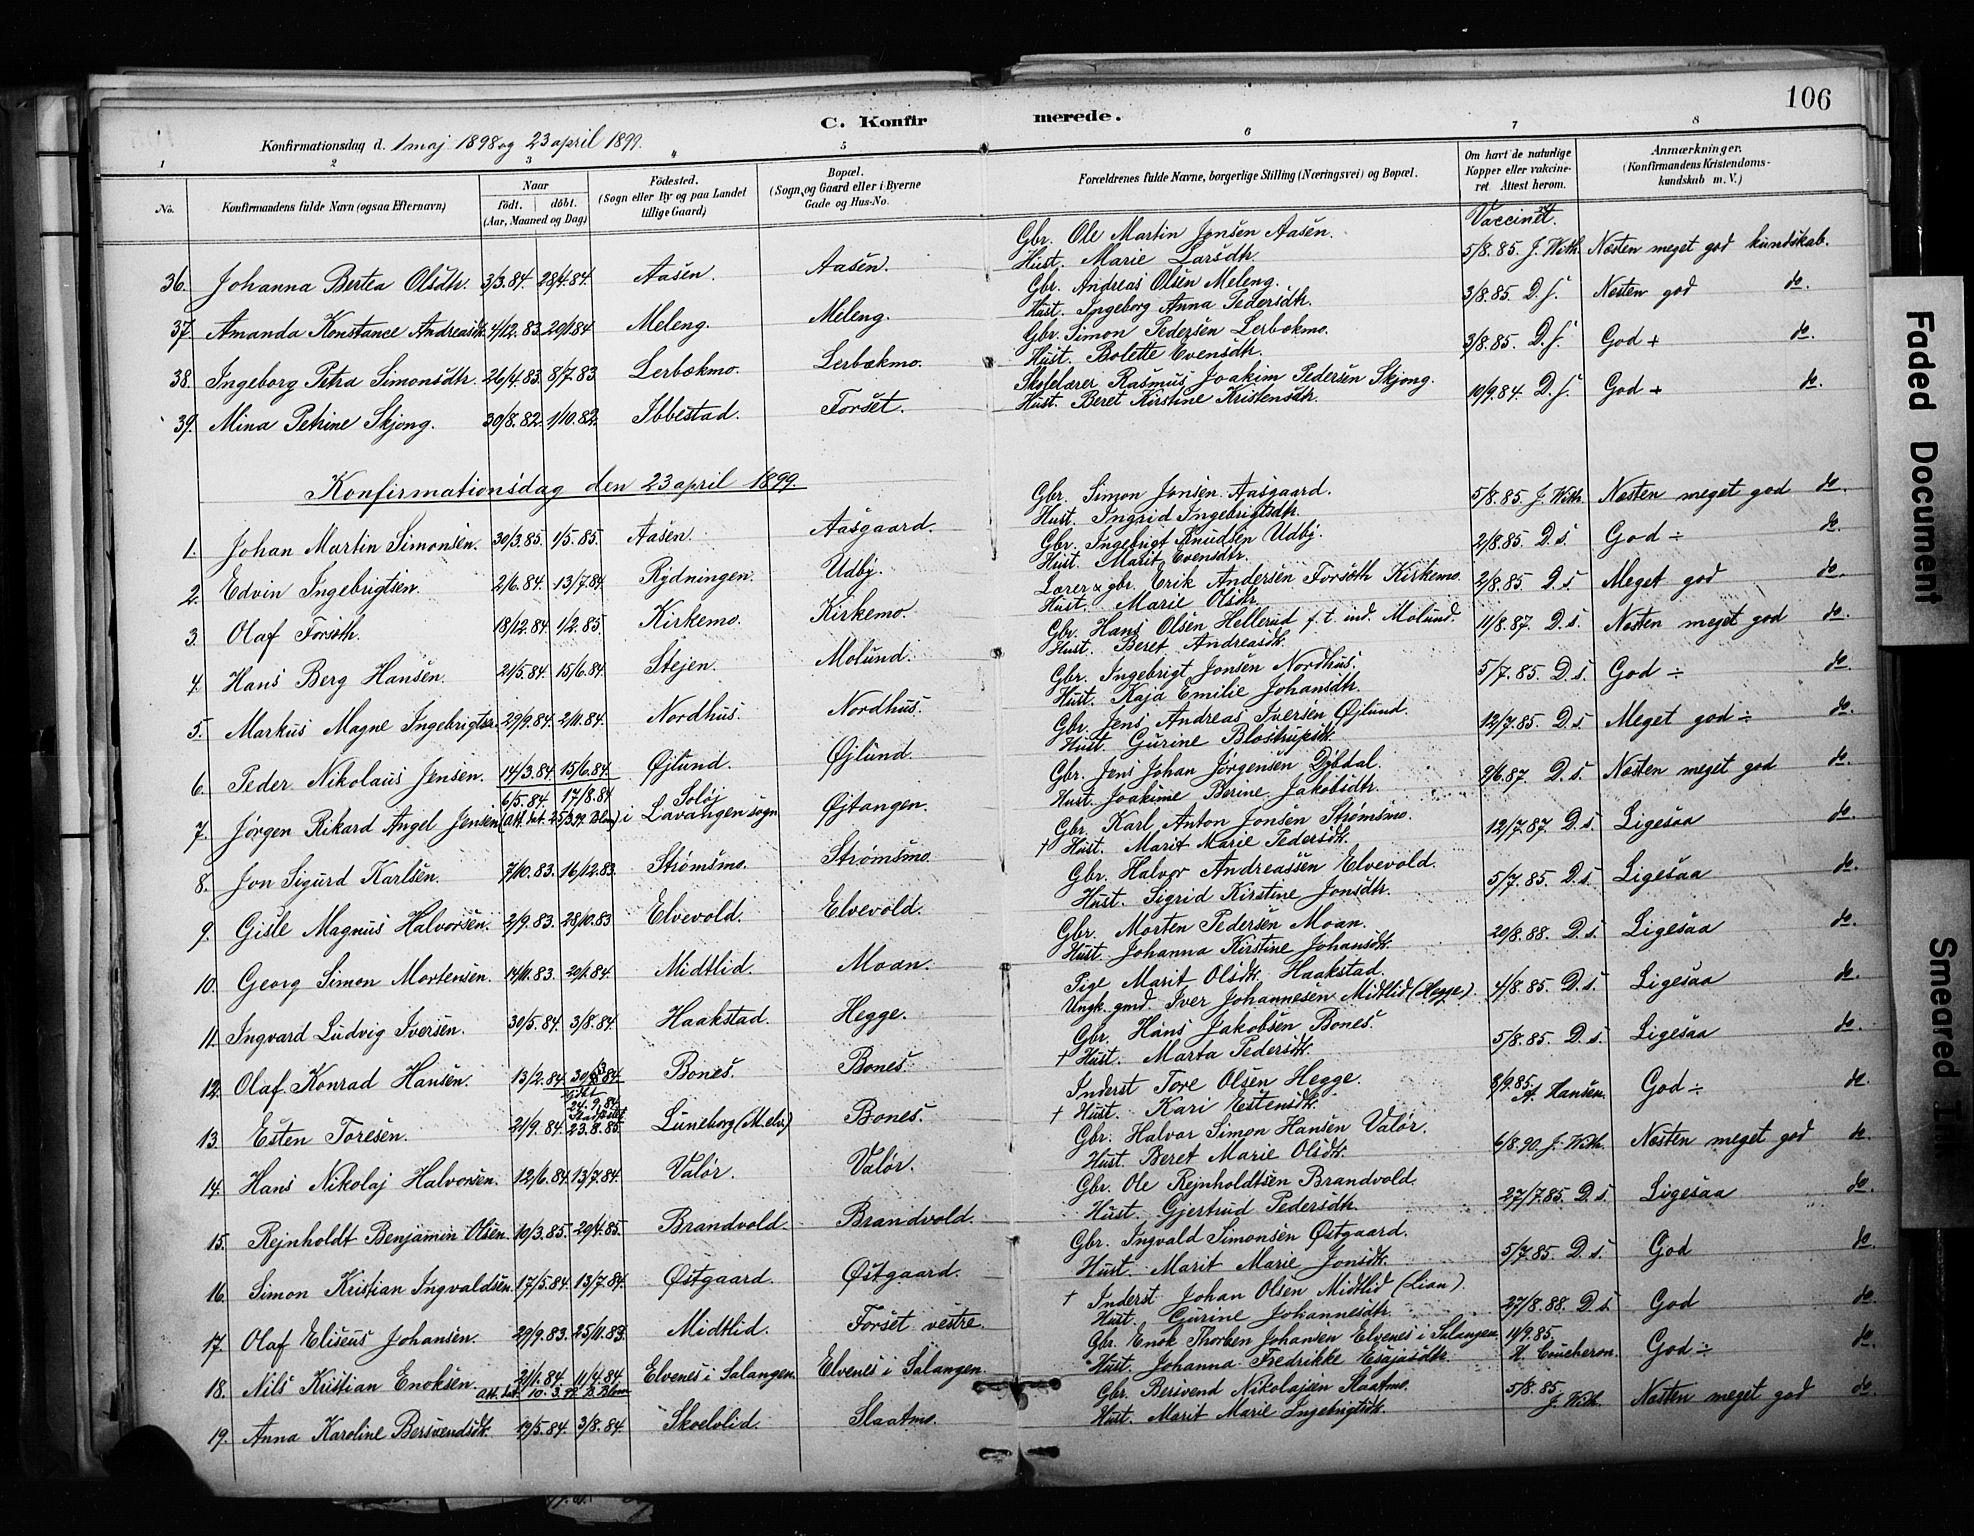 106
C. Konfirmerede.
Konfirmationsdag d. 1 maj 1898 og 23 april 1899.
1 2 3 4 5 6 7 8
No. Konfirmandens fulde Navn (ogsaa Efternavn) Naar födt. döbt. (Aar, Maaned og Dag) Födested. (Sogn eller By og paa Landet tillige Gaard) Bopæl. (Sogn og Gaard eller i Byerne Gade og Hus-No. Forældrenes fulde Navne, borgerlige Stilling (Næringsvei) og Bopæl. Om havt de naturlige Kopper eller vakcineret Attest herom. Anmærkninger. (Konfirmandens Kristendomskundskab m. V.)
Vaccineret.
36. Johanna Bertea Olsdtr. 3/3.84. 28/4.84. Aasen. Aasen. Gbr. Ole Martin Jonsen Aasen. 5/8.85. J. With. Næsten meget god kundskab.
Hust. Marie Larsdtr.
37. Amanda Konstance Andreasdtr. 4/12.83. 20/1.84 Meleng. Meleng. Gbr. Andreas Olsen Meleng. 3/8.85. D.s. Næsten god do.
Hust. Ingeborg Anna Pedersdtr.
38. Ingeborg Petra Simonsdtr. 26/4.83. 8/7.83. Lerbækmo. Lerbækmo. Gbr. Simon Pedersen Lerbækmo. 3/8.85. D.s. God + do.
Hust. Bolette Evensdtr.
39. Mina Petrine Skjong. 30/8.82. 1/10.82. Ibbestad. Forset. Skolelærer Rasmus Joakim Pedersen Skjong. 10/9.84. D.s. God + do.
Hust. Beret Kirstine Kristensdtr.
Konfirmationsdag den 23 april 1899.
1. Johan Martin Simonsen. 30/3.85. 1/5.85. Aasen. Aasgaard. Gbr. Simon Jonsen Aasgaard. 5/8.85. J. With. Næsten meget god do.
Hust. Ingrid Ingebrigtsdtr.
2. Edvin Ingebrigtsen. 2/6.84. 13/7.84 Rydningen. Udby. Gbr. Ingebrigt Knudsen Udby. 2/8.85. D.s. God ÷ do.
Hust. Marit Evensdtr.
3. Olaf Forseth. 18/12.84. 1/2.85. Kirkemo. Kirkemo. Lærer & gbr. Erik Andersen Forseth Kirkemo. 2/8.85 D.s Meget god do.
Hust. Marie Olsdtr.
4. Hans Berg Hansen. 21/5.84. 15/6.84. Stejen. Molund. Gbr. Hans Olsen Hellerud f.t. ind. Molund. 11/8.87. D.s. Næsten meget god do.
Hust. Beret Andreasdtr.
5. Markus Magne Ingebrigtsen. 29/9.84. 2/11.84. Nordhus. Nordhus. Gbr. Ingebrigt Jonsen Nordhus. 5/7.85. D.s. God ÷ do.
Hust. Kaja Emilie Johansdtr.
6. Peder Nikolaus Jensen. 14/3.84. 15/6.84. Øjlund. Øjlund. Gbr. Jens Andreas Iversen Øjlund. 12/7.85. D.s Meget god ÷ do.
Hust. Gurine Blostrupsdtr.
7. Jørgen Rikard Angel Jensen 6/5.84. 17/8.84 (Att. bet. 25/3.99. Blom) Soløj i Lavangen sogn Øjtangen. Gbr. Jens Johan Jørgensen Dybdal. 9/6.87. D.s. Næsten meget god do.
Hust. Joakime Berine Jakobsdtr.
8. Jon Sigurd Karlsen. 7/10.83. 16/12.83. Strømsmo. Strømsmo. Gbr. Karl Anton Jonsen Strømsmo. 12/7.87. D.s. Ligesaa do.
† Hust. Marit Marie Pedersdtr.
9. Gisle Magnus Halvorsen. 2/9.83. 28/10.83 Elvevold. Elvevold. Gbr. Halvor Andreassen Elvevold. 5/7.85. D.s. Ligesaa do.
Hust. Sigrid Kirstine Jonsdtr.
10. Georg Simon Mortensen. 14/11.83. 20/1.84. Midtlid. Moan. Gbr. Morten Pedersen Moan. 20/8.88. D.s. Ligesaa do.
Hust. Johanna Kirstine Johansdtr.
11. Ingvard Ludvig Iversen. 30/5.84. 3/8.84. Haakstad. Hegge. Pige Marit Olsdtr. Haakstad. 4/8.85. D.s. Ligesaa do.
Ungk. gmd. Iver Johannesen Midtlid (Hegge).
12. Olaf Konrad Hansen. 13/2.84. 30/3.84. Bones. Bones. Gbr. Hans Jakobsen Bones. 5/8.85. D.s. Ligesaa do.
† Hust. Marta Pedersdtr.
13. Esten Toresen. 21/9.84. 24.9.84. 23.8.85. Luneborg (M.elv) Bones. Inderst Tore Olsen Hegge. 8/9.85. A. Hansen. God ÷ do.
† Hust. Kari Estensdtr.
14. Hans Nikolaj Halvorsen. 12/6.84. 13/7.84. Valør. Valør. Gbr. Halvor Simon Hansen Valør. 6/8.90. J. With. Næsten meget god do.
Hust. Beret Marie Olsdtr.
15. Rejnholdt Benjamin Olsen. 10/3.85. 20/4.85. Brandvold. Brandvold. Gbr. Ole Rejnholdtsen Brandvold. 27/7.85. D.s. Ligesaa do.
Hust. Gjertrud Pedersdtr.
16. Simon Kristian Ingvaldsen. 17/5.84. 13/7.84. Østgaard. Østgaard. Gbr. Ingvald Simonsen Østgaard. 5/7.85. D.s. God do.
Hust. Marit Marie Jonsdtr.
17. Olaf Eliseus Johansen. 29/9.83. 25/11.83. Midtlid. Forset vestre. † Inderst Johan Olsen Midtlid (Lian). 27/8.88. D.s. God do.
Hust. Gurine Johannesdtr.
18. Nils Kristian Enoksen. 21/1.84. 11/4.84 Att. bet. 10.3.99 B. Blom Elvenes i Salangen. Elvenes i Salangen. Gbr. Enok Thorben Johansen Elvenes i Salangen. 11/9.85. H. Coucheron. God ÷ do.
Hust. Johanna Fredrikke Esajasdtr.
19. Anna Karoline Bersvendsdtr. 19/5.84. 3/8.84. Skoelvlid. Slaatmo. Gbr. Berivend Nikolajsen Slaatmo. 5/8.85. J. With. Næsten meget god do.
Hust. Marit Marie Ingebrigtsdtr.
Faded Document
Smeared